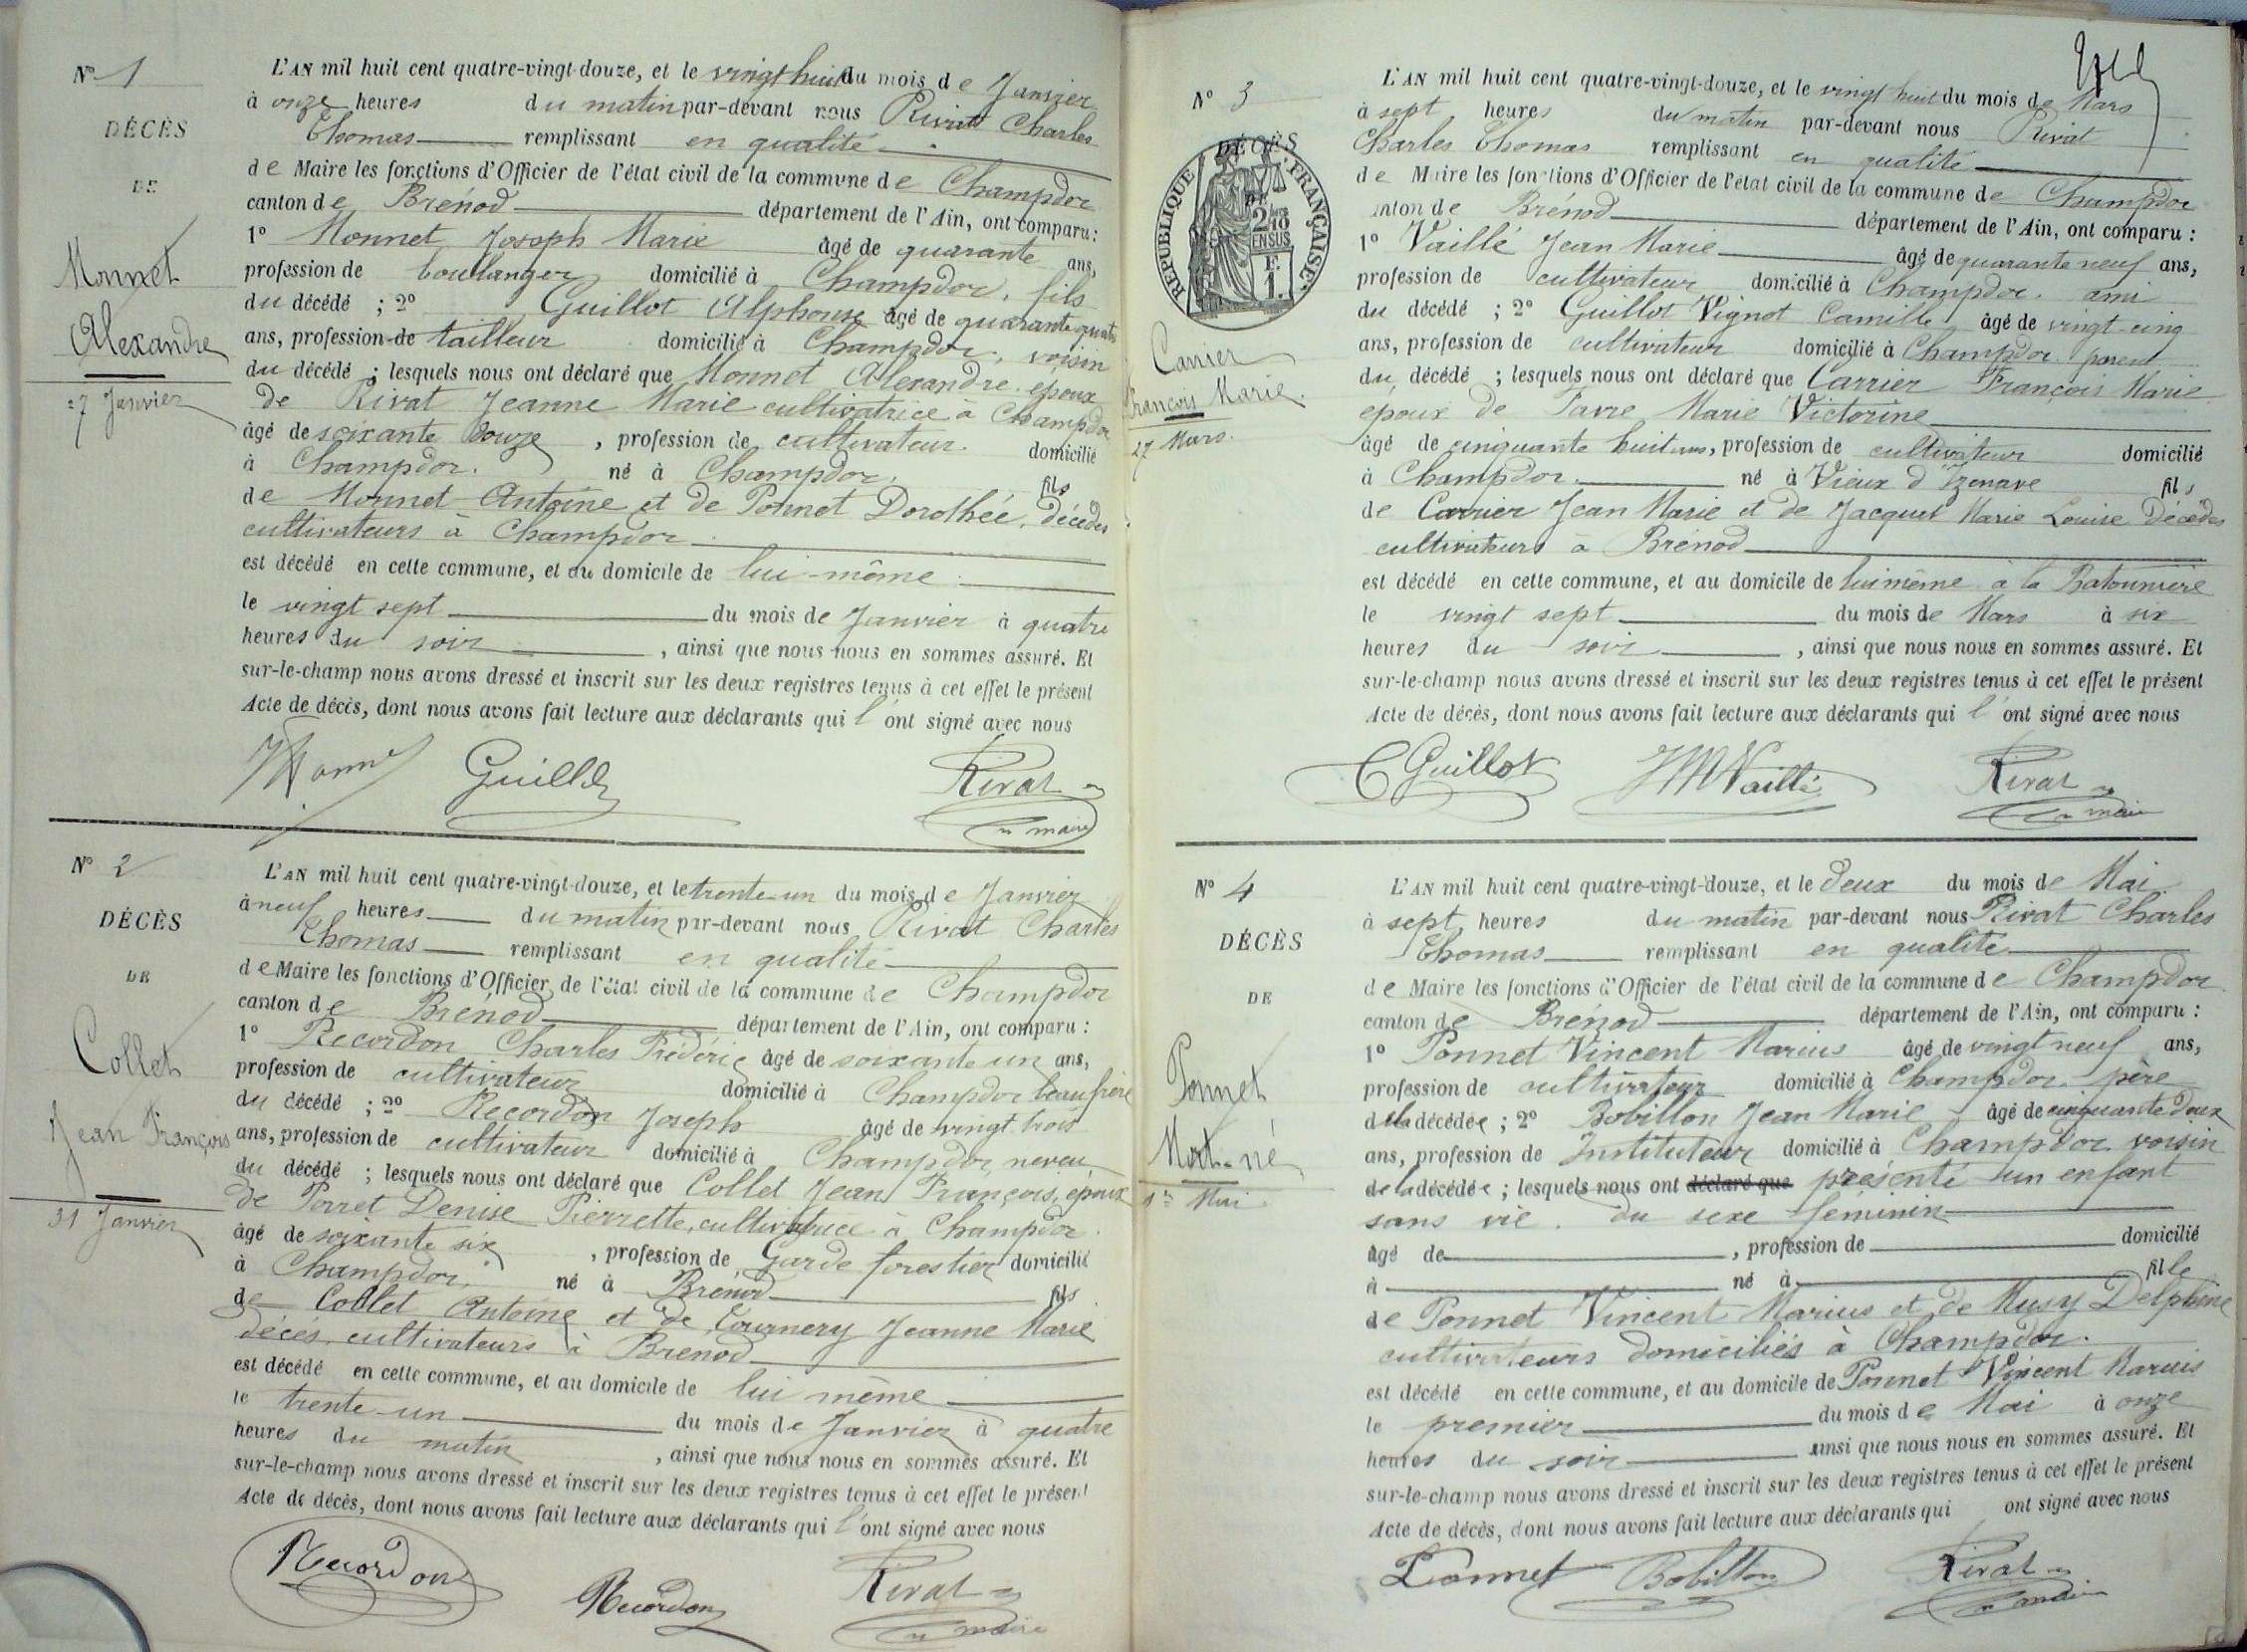 N° 1
DÉCÈS
DE
Monnet
Alexandre
27 Janvier
L'AN mil huit cent quatre-vingt-douze, et le vingt huit du mois de Janvier
à onze heures du matin par-devant nous Rivat Charles
Thomas remplissant en qualité
de Maire les fonctions d'Officier de l'état civil de la commune de Champdor
canton de Brénod département de l'Ain, ont comparu :
1° Monnet Joseph Marie âgé de quarante ans,
profession de boulanger domicilié à Champdor, fils
du décédé ; 2° Guillot Alphonse âgé de quarante quatre
ans, profession de tailleur domicilié à Champdor, voisin
du décédé ; lesquels nous ont déclaré que Monnet Alexandre époux
de Rivat Jeanne Marie cultivatrice à Champdor
âgé de soixante douze , profession de cultivateur domicilié
à Champdor. né à Champdor, fils
de Monnet Antoine et de Ponnet Dorothée, décédés
cultivateurs à Champdor
est décédé en cette commune, et au domicile de lui-même
le vingt sept du mois de Janvier à quatre
heures du soir , ainsi que nous nous en sommes assuré. Et
sur-le-champ nous avons dressé et inscrit sur les deux registres tenus à cet effet le présent
Acte de décès, dont nous avons fait lecture aux déclarants qui l'ont signé avec nous
Guillot
Rivat
maire
N° 2
DÉCÈS
DE
Collet
Jean François
31 Janvier
L'AN mil huit cent quatre-vingt-douze, et le trente-un du mois de Janvier
à neuf heures du matin par-devant nous Rivat Charles
Thomas remplissant en qualité
de Maire les fonctions d'Officier de l'état civil de la commune de Champdor
canton de Brénod département de l'Ain, ont comparu :
1° Recordon Charles Frédéric âgé de soixante un ans,
profession de cultivateur domicilié à Champdor beau frère
du décédé ; 2° Recordon Joseph âgé de vingt trois
ans, profession de cultivateur domicilié à Champdor, neveu
du décédé ; lesquels nous ont déclaré que Collet Jean François, époux
de Porret Denise Pierrette, cultivatrice à Champdor
âgé de soixante six , profession de Garde forestier domicilié
à Champdor. né à Brénod fils
de Collet Antoine et de Tournery Jeanne Marie
décés, cultivateurs à Brenod
est décédé en cette commune, et au domicile de lui même
le trente-un du mois de Janvier à quatre
heures du matin , ainsi que nous nous en sommes assuré. Et
sur-le-champ nous avons dressé et inscrit sur les deux registres tenus à cet effet le présent
Acte de décès, dont nous avons fait lecture aux déclarants qui l'ont signé avec nous
Recordon
Recordon
Rivat
maire
N° 3
DÉCÈS
DE
RÉPUBLIQUE FRANÇAISE
2/10 EN SUS
F.
1.
Carrier
François Marie.
27 Mars.
L'AN mil huit cent quatre-vingt-douze, et le vingt huit du mois de Mars
à sept heures du matin par-devant nous Rivat
Charles Thomas remplissant en qualité
de Maire les fonctions d'Officier de l'état civil de la commune de Champdor
canton de Brénod département de l'Ain, ont comparu :
1° Vaillé Jean Marie âgé de quarante neuf ans,
profession de cultivateur domicilié à Champdor. ami
du décédé ; 2° Guillot Vignot Camille âgé de vingt-cinq
ans, profession de cultivateur domicilié à Champdor parent
du décédé ; lesquels nous ont déclaré que Carrier François Marie
époux de Favre Marie Victorine
âgé de cinquante huit ans, profession de cultivateur domicilié
à Champdor. né à Vieux d'Izenave fils
de Carrier Jean Marie et de Jacquet Marie Louise Décédés
cultivateurs à Brenod
est décédé en cette commune, et au domicile de lui même à la
le vingt sept du mois de Mars à six
heures du soir , ainsi que nous nous en sommes assuré. Et
sur-le-champ nous avons dressé et inscrit sur les deux registres tenus à cet effet le présent
Acte de décès, dont nous avons fait lecture aux déclarants qui l'ont signé avec nous
C Guillot
JM Vaillé
Rivat
maire
N° 4
DÉCÈS
DE
Ponnet
Mort-né
1er Mai
L'AN mil huit cent quatre-vingt-douze, et le deux du mois de Mai
à sept heures du matin par-devant nous Rivat Charles
Thomas remplissant en qualité
de Maire les fonctions d'Officier de l'état civil de la commune de Champdor
canton de Brénod département de l'Ain, ont comparu :
1° Ponnet Vincent Marius âgé de vingt neuf ans,
profession de cultivateur domicilié à Champdor. père
de la décédée ; 2° Bobillon Jean Marie âgé de cinquante deux
ans, profession de Instituteur domicilié à Champdor voisin
de la décédée ; lesquels nous ont déclaré que présenté un enfant
sans vie. du sexe féminin
âgé de , profession de domicilié
à né à fille
de Ponnet Vincent Marius et de Musy Delphine
cultivateurs domiciliés à Champdor.
est décédé en cette commune, et au domicile de Ponnet Vincent Marius
le premier du mois de Mai à onze
heures du soir ainsi que nous nous en sommes assuré. Et
sur-le-champ nous avons dressé et inscrit sur les deux registres tenus à cet effet le présent
Acte de décès, dont nous avons fait lecture aux déclarants qui ont signé avec nous
Ponnet
Bobillon
Rivat
maire